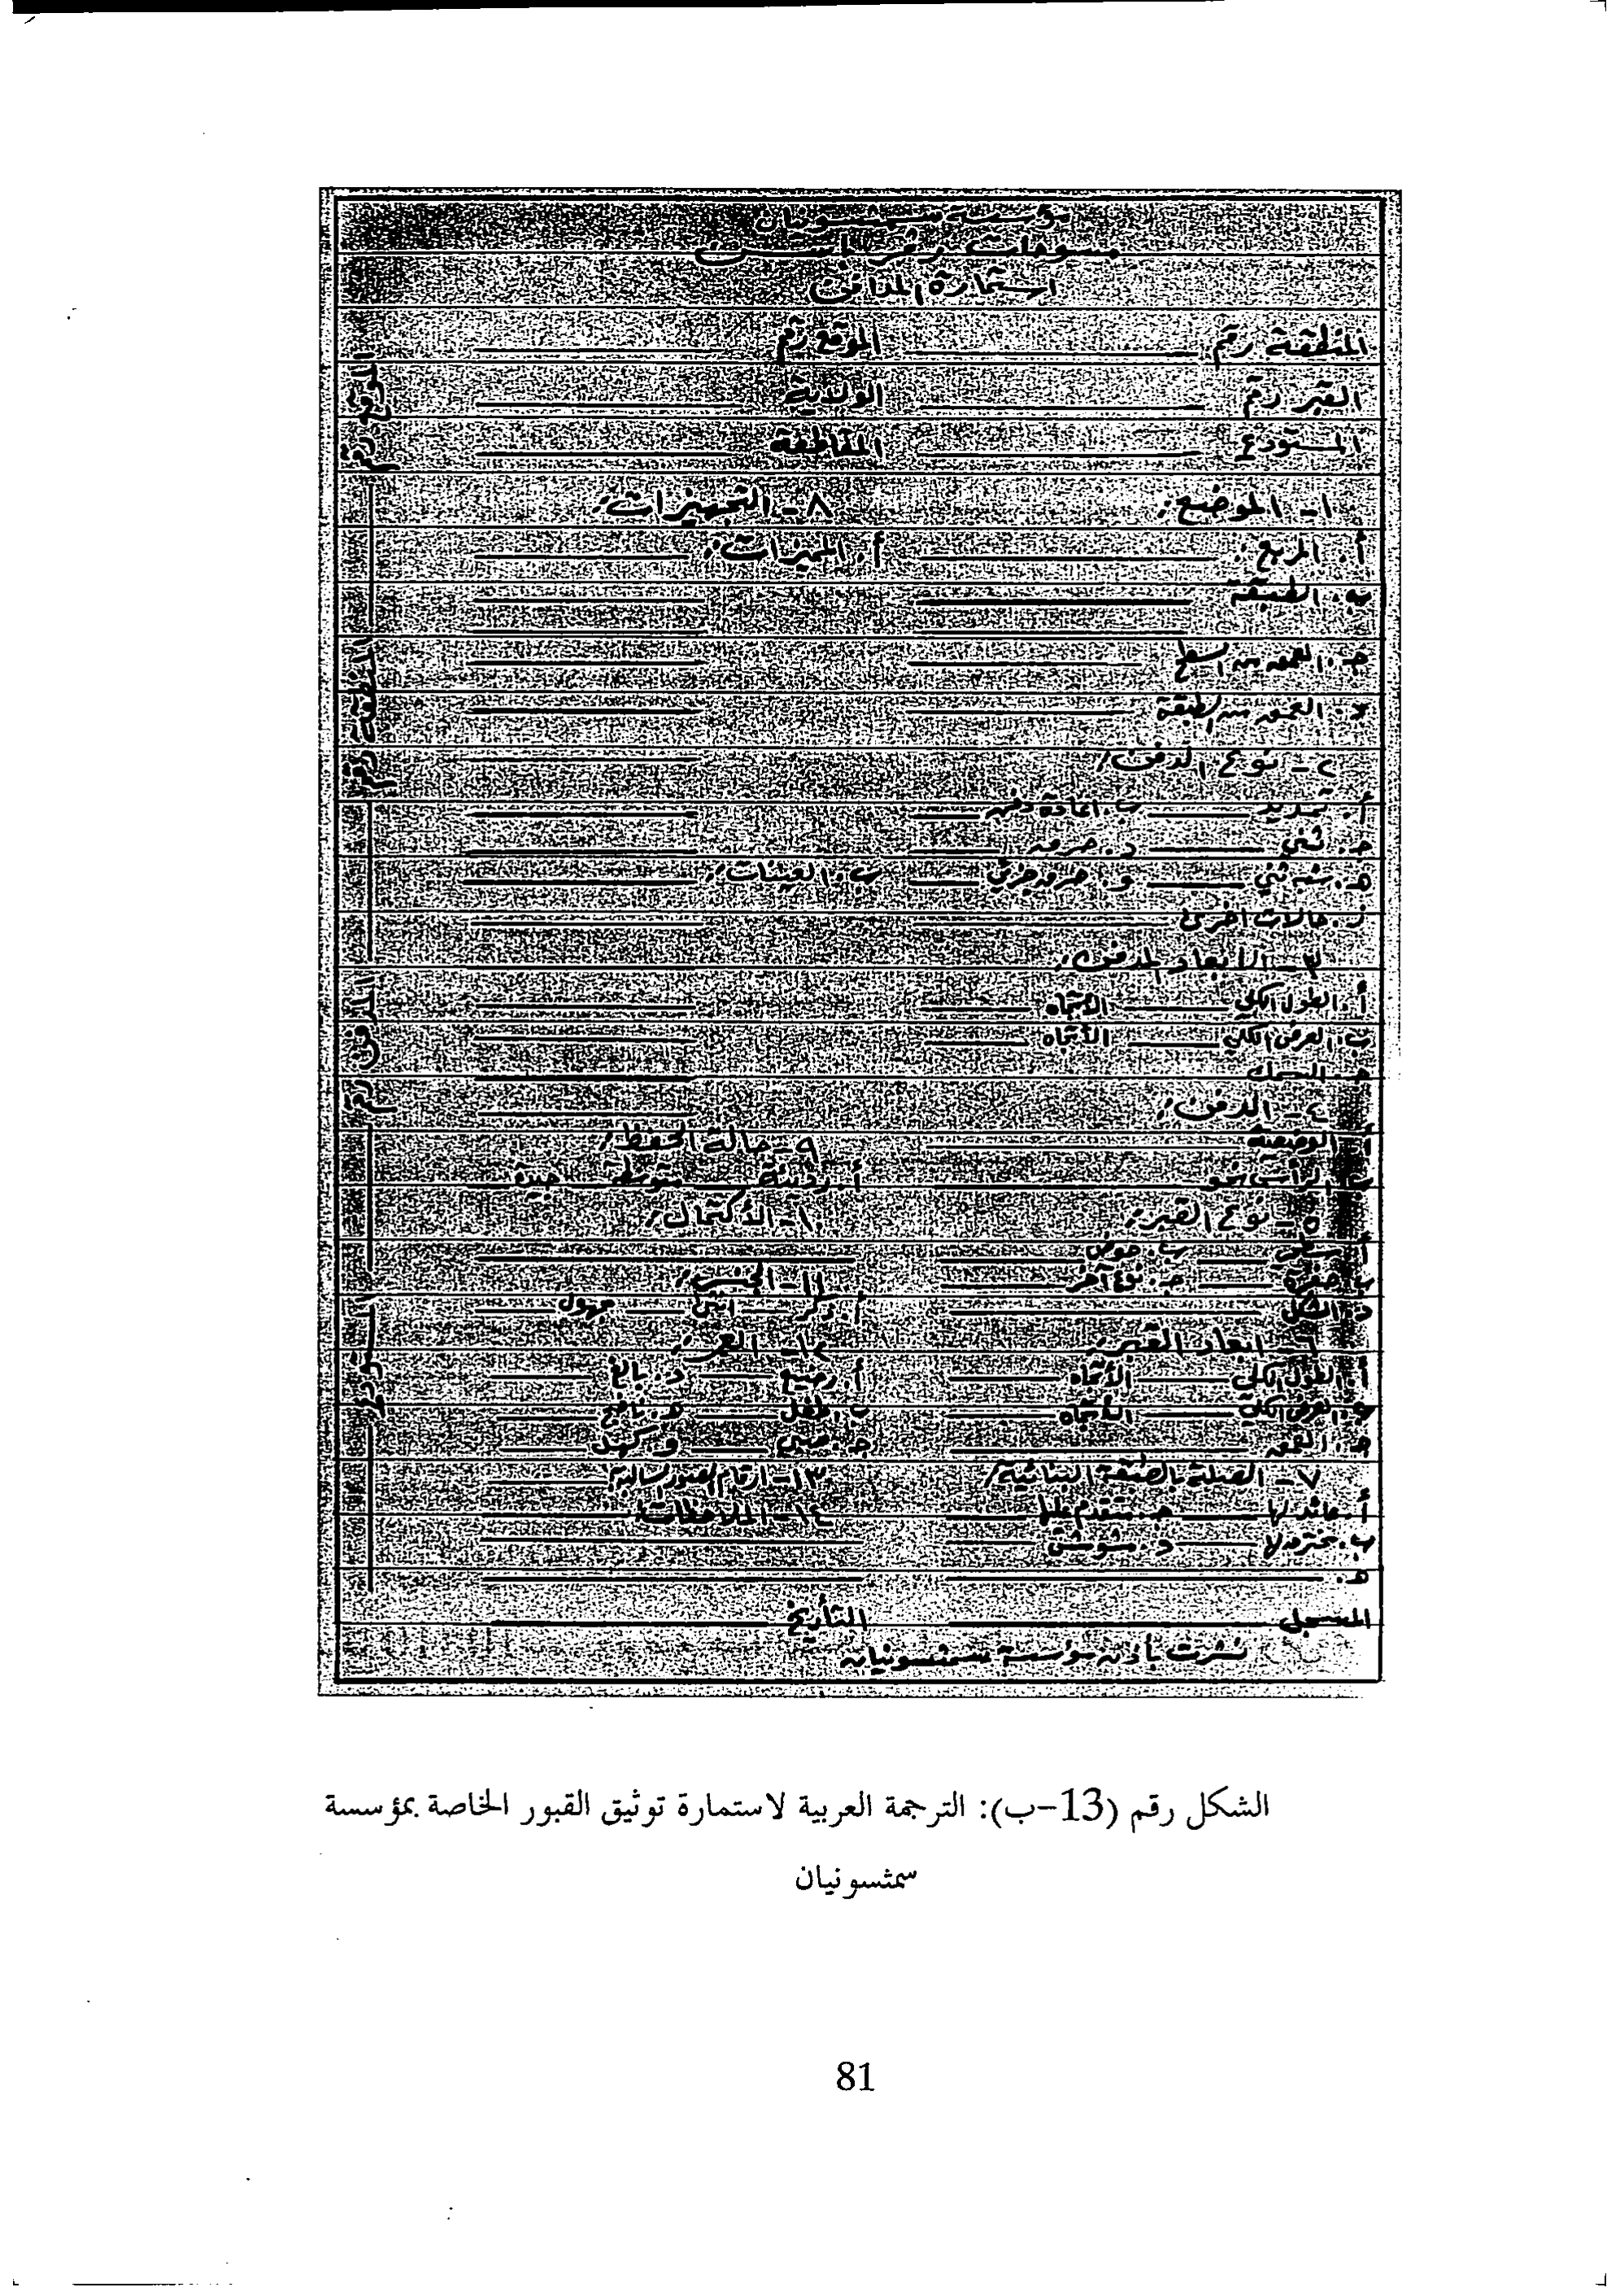 مؤسسة سمثسونيان
مسوحات حوض نهر
استمارة المدافن
المنطقة رقم ________ الموقع رقم ________
القبر رقم ________ الولاية ________
المستودع ________ المقاطعة ________
١- الموضع: ٨- التجهيزات:
أ. المربع: ________ أ. المميزات: ________
ب. الطبقة ________
جـ. العمق من السطح ________
د. العمق من الطبقة ________
٢- نوع الدفن:
أ. تمديد ________ ب. اعادة دفن ________
جـ. ثني ________ د. حرق ________
هـ. شبه ثني ________ و. حرق جزئي ________ ب. العينات: ________
ز. حالات اخرى ________
٣- الابعاد لمدفن:
أ. الطول الكلي ________ الاتجاه ________
ب. العرض الكلي ________ الاتجاه ________
جـ. السمك
٤- الدفن:
أ. الوضعية ________ ٩- حالة الحفظ:
ب. الرأس نحو ________ أ. رديئة ____ متوسطة ____ جيدة
٥- نوع القبر: ١٠- الاكتمال:
أ. سطحي ________ ب. حوض ________
ب. حفرة ________ جـ. نوع آخر ________ ١١- الجنس:
د. الشكل ________ أ. ذكر ____ انثى ____ مجهول ____
٦- ابعاد القبر: ١٢- العمر:
أ. الطول الكلي ________ الاتجاه ________ أ. رضيع ________ د. بالغ ________
ب. العرض الكلي ________ الاتجاه ________ ب. طفل ________ هـ. ناضج ________
جـ. العمق ________ جـ. صبي ________ و. كهل ________
٧- الصلة بالطبقة البنائية: ١٣- ارقام الصور السالبة: ________
أ. عائد لها ________ جـ. متقدم عليها ________ ١٤- الملاحظات:
ب. مخترق لا ________ د. مشوش ________
هـ. ________
المسجل ________ التأريخ ________
نشرت بأذن مؤسسة سمثسونيان
الموقع رقم
المنطقة رقم
المدفن رقم
الشكل رقم (13-ب): الترجمة العربية لاستمارة توثيق القبور الخاصة بمؤسسة
سمثسونيان
81